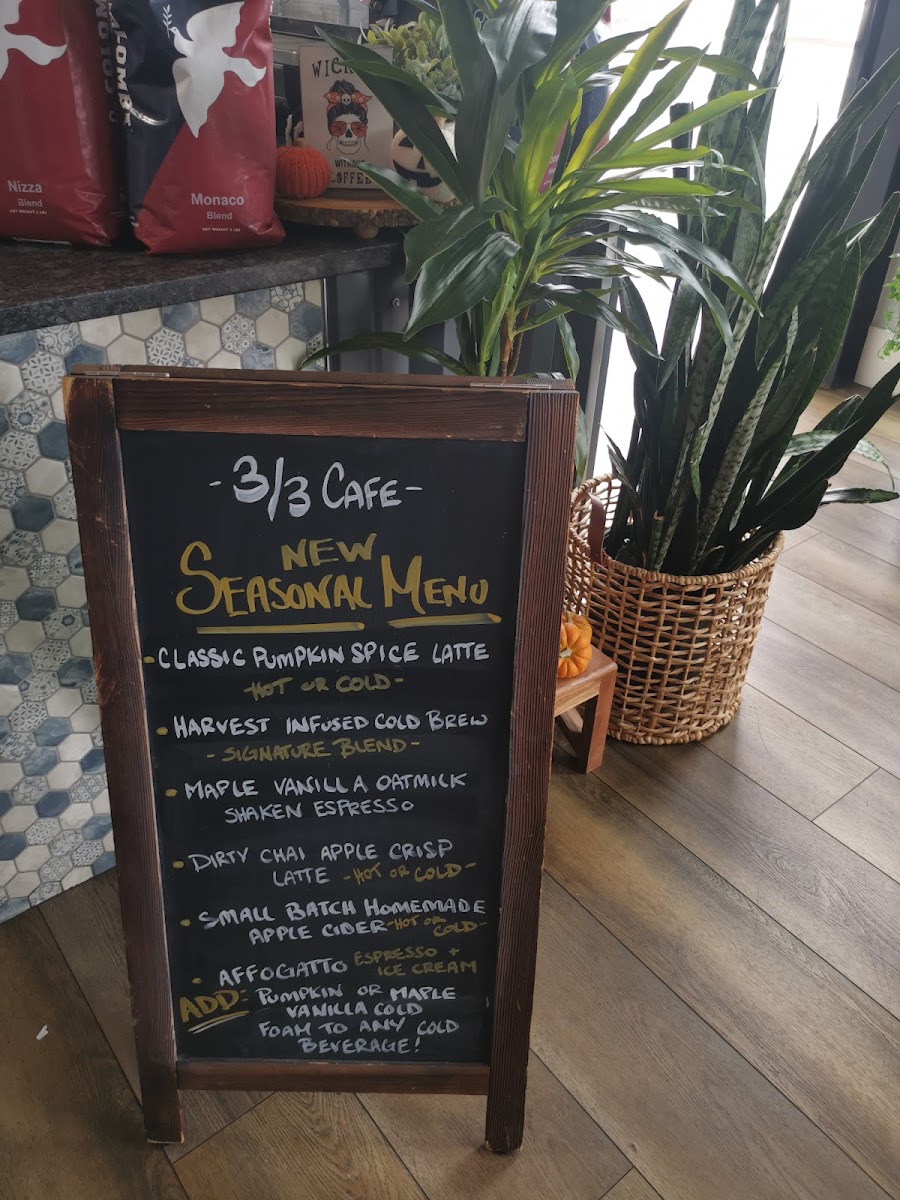 LOMBE
Nizza
Blend
NET WEIGHT 5 LBS
Monaco
Blend
NET WEIGHT 5 LBS
WITHOUT
COFFEE
- 3/3 CAFE -
NEW
SEASONAL MENU
• CLASSIC PUMPKIN SPICE LATTE
- HOT OR COLD -
• HARVEST INFUSED COLD BREW
- SIGNATURE BLEND -
• MAPLE VANILLA OATMILK
SHAKEN ESPRESSO
• DIRTY CHAI APPLE CRISP
LATTE - HOT OR COLD -
• SMALL BATCH HOMEMADE
APPLE CIDER - HOT OR COLD -
• AFFOGATTO ESPRESSO +
ICE CREAM
ADD: PUMPKIN OR MAPLE
VANILLA COLD
FOAM TO ANY COLD
BEVERAGE!